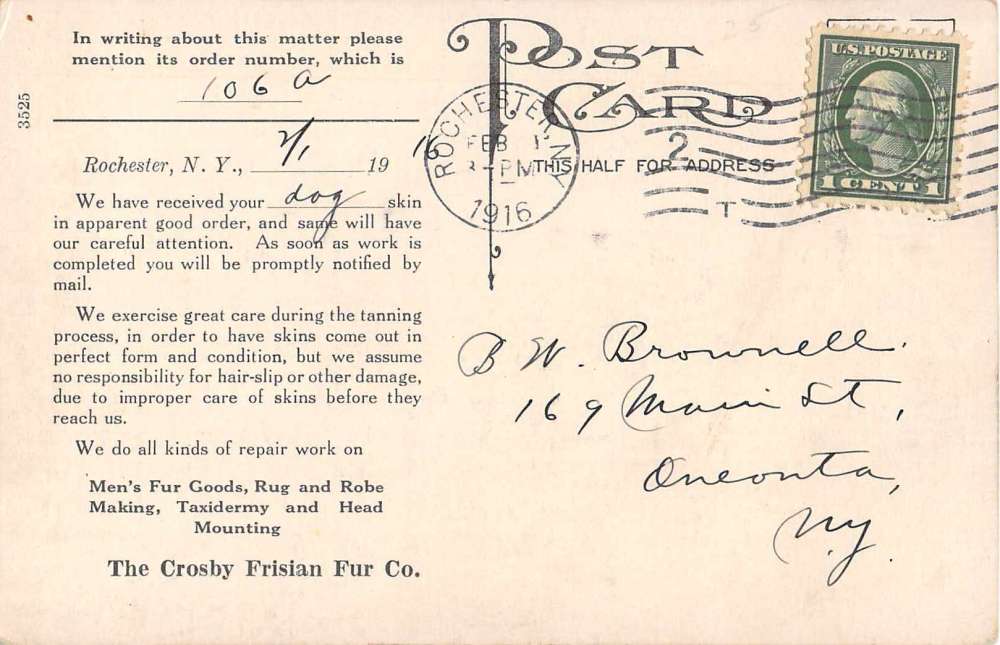 In writing about this matter please
mention its order number, which is
106 a
3525
Rochester, N. Y., 2/1 19 16
We have received your dog skin
in apparent good order, and same will have
our careful attention. As soon as work is
completed you will be promptly notified by
mail.
We exercise great care during the tanning
process, in order to have skins come out in
perfect form and condition, but we assume
no responsibility for hair-slip or other damage,
due to improper care of skins before they
reach us.
We do all kinds of repair work on
Men's Fur Goods, Rug and Robe
Making, Taxidermy and Head
Mounting
The Crosby Frisian Fur Co.
POST
CARD
THIS HALF FOR ADDRESS
ROCHESTER, N.Y.
FEB 1
PM
1916
2
T
U.S. POSTAGE
1 CENT 1
B W. Brownell.
169 Main St,
Oneonta,
NY.